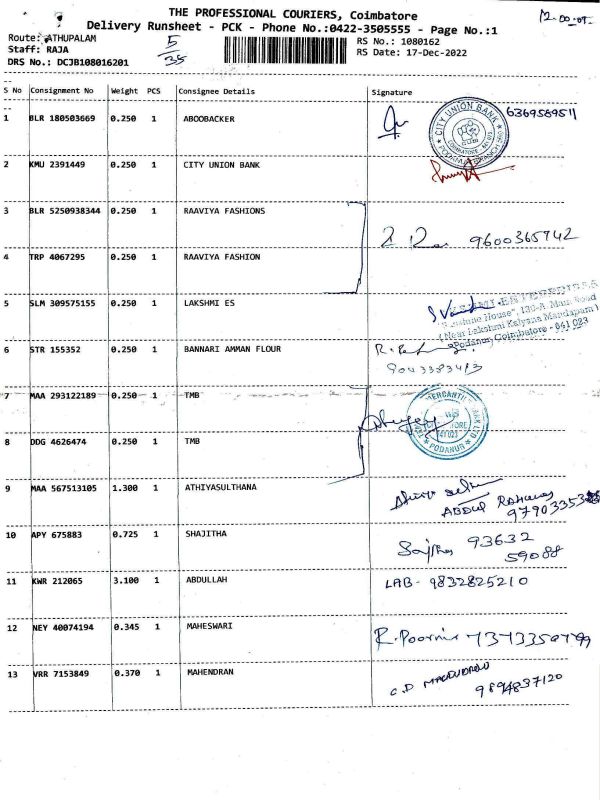 THE PROFESSIONAL COURIERS, Coimbatore
Delivery Runsheet - PCK - Phone No.:0422-3505555 - Page No.:1
Route: ATHUPALAM
5
RS No.: 1080162
Staff: RAJA
35
RS Date: 17-Dec-2022
DRS No.: DCJB108016201
S No Consignment No Weight PCS Consignee Details Signature
1 BLR 180503669 0.250 1 ABOOBACKER
CITY UNION BANK
6369589511
2 KMU 2391449 0.250 1 CITY UNION BANK
3 BLR 5250938344 0.250 1 RAAVIYA FASHIONS
9600365742
4 TRP 4067295 0.250 1 RAAVIYA FASHION
5 SLM 309575155 0.250 1 LAKSHMI ES
House", 132-A, Main Road
Lakshmi Kalyana Mandapam
Podanur, Coimbatore - 641 023
6 STR 155352 0.250 1 BANNARI AMMAN FLOUR
9043383413
7 MAA 293122189 0.250 1 TMB
PODANUR
8 DDG 4626474 0.250 1 TMB
9 MAA 567513105 1.300 1 ATHIYASULTHANA
ABDUL
10 APY 675883 0.725 1 SHAJITHA
93632
59088
11 KWR 212065 3.100 1 ABDULLAH
LAB- 9832825210
12 NEY 40074194 0.345 1 MAHESWARI
R. Poornima
13 VRR 7153849 0.370 1 MAHENDRAN
9894837120